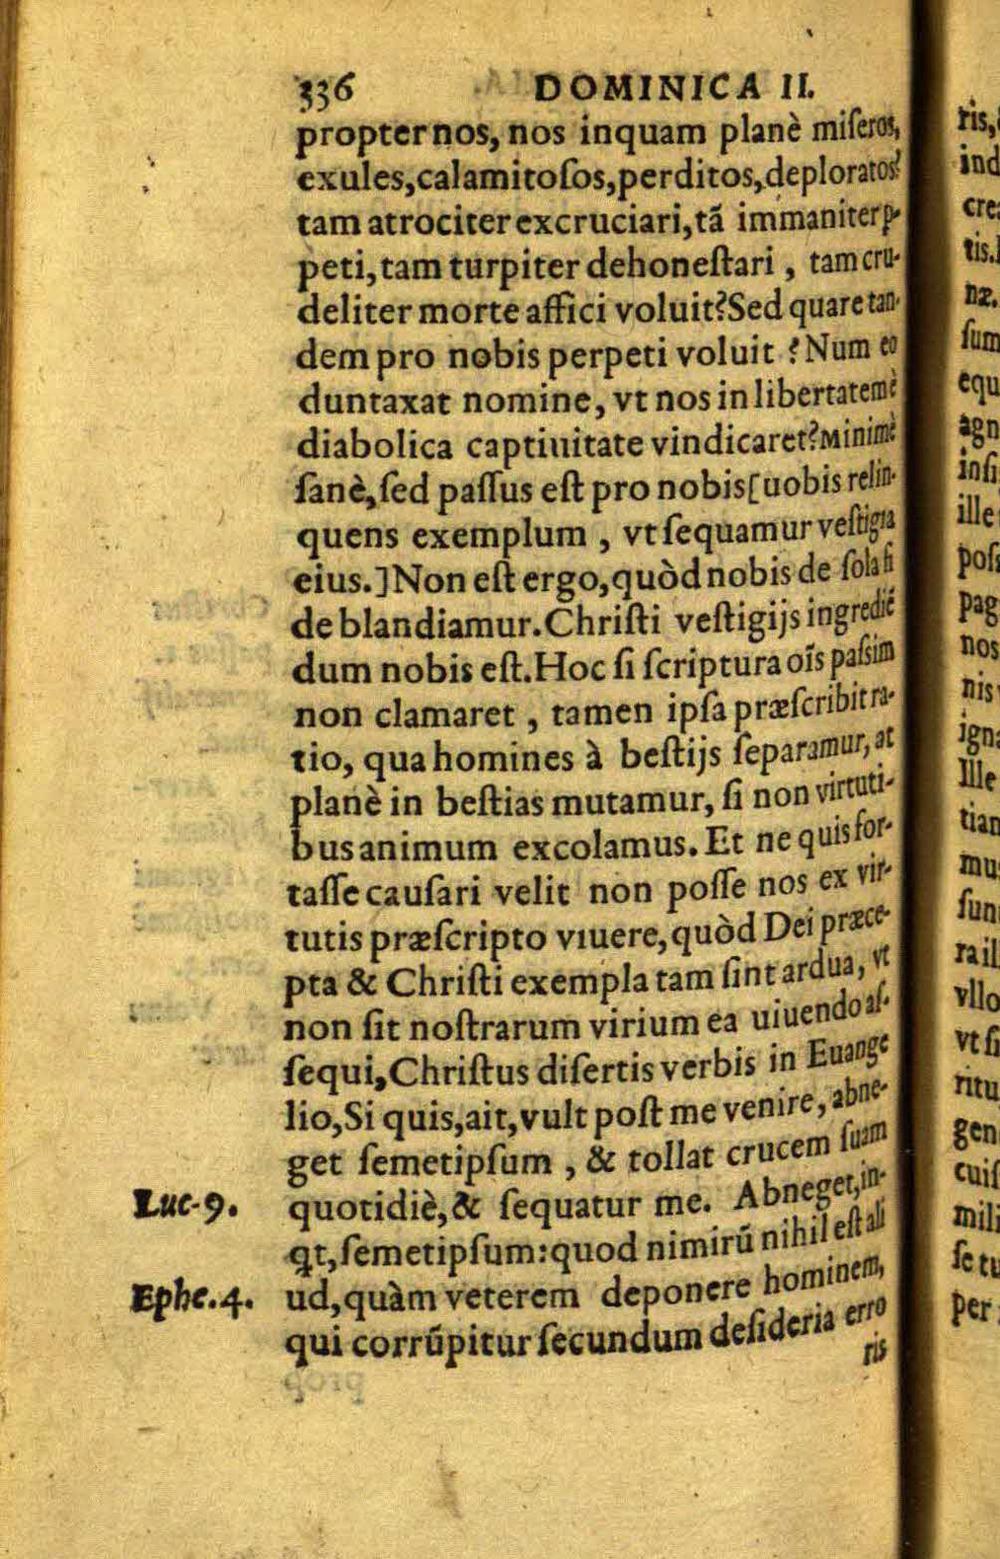 336 DOMINICA II.
propter nos, nos inquam planè miſeros,
exules, calamitoſos, perditos, deploratos?
tam atrociter excruciari, tã immaniter ꝑ-
peti, tam turpiter dehoneſtari, tam cru-
deliter morte affici voluit? Sed quare tan-
dem pro nobis perpeti voluit? Num eo
duntaxat nomine, vt nos in libertatem è
diabolica captiuitate vindicaret? Minimè
ſanè, ſed paſſus eſt pro nobis [uobis relin-
quens exemplum, vt ſequamur veſtigia
eius.] Non eſt ergo, quòd nobis de ſola fi
de blandiamur. Chriſti veſtigijs ingrediẽ
dum nobis eſt. Hoc ſi ſcriptura oĩs paſsim
non clamaret, tamen ipſa præſcribit ra-
tio, qua homines à beſtijs ſeparamur, at
planè in beſtias mutamur, ſi non virtuti-
bus animum excolamus. Et ne quis for-
taſſe cauſari velit non poſſe nos ex vir-
tutis præſcripto viuere, quòd Dei præce-
pta & Chriſti exempla tam ſint ardua, vt
non ſit noſtrarum virium ea uiuendo aſ-
ſequi, Chriſtus diſertis verbis in Euange
lio, Si quis, ait, vult poſt me venire, abne-
get ſemetipſum, & tollat crucem ſuam
Luc. 9. quotidiè, & ſequatur me. Abneget, in-
qt, ſemetipſum: quod nimirũ nihil eſt ali
Ephe. 4. ud, quàm veterem deponere hominem,
qui corrũpitur ſecundum deſideria erro
ris
ris,
ind
cre
tis.
næ,
ſum
equ
agn
inſi
ille
poſ
pag
nos
nis
ign
Ille
tian
mu
ſun
ra il
vllo
vt ſi
ritu
gen
cuiſ
mili
ſe tu
per